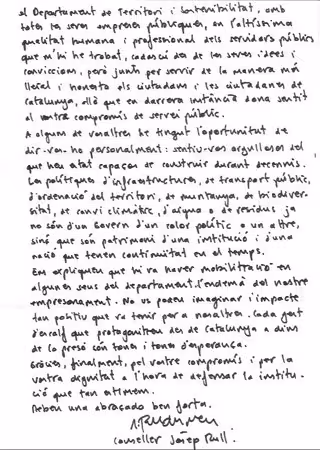 el Departament de Territori i Sostenibilitat, amb
totes les seves empreses públiques, en l'altíssima
qualitat humana i professional dels servidors públics
que m'hi he trobat, cadascú des de les seves idees i
conviccions, però junts per servir de la manera més
lleial i honesta als ciutadans i les ciutadanes de
Catalunya, allò que en darrera instància dona sentit
al vostre compromís de servei públic.
A alguns de vosaltres he tingut l'oportunitat de
dir-vos-ho personalment: sentiu-vos orgullosos del
que heu estat capaços de construir durant decennis.
Les polítiques d'infraestructures, de transport públic,
d'ordenació del territori, de muntanya, de biodiver-
sitat, de canvi climàtic, d'aigua o de residus ja
no són d'un Govern d'un color polític o un altre,
sinó que són patrimoni d'una institució i d'una
nació que tenen continuïtat en el temps.
Em expliquen que hi va haver mobilització en
algunes seus del departament l'endemà del nostre
empresonament. No us podeu imaginar l'impacte
tan positiu que va tenir per a nosaltres. Cada gest
d'escalf que protagonitzeu des de Catalunya a dins
de la presó són tones i tones d'esperança.
Gràcies, finalment, pel vostre compromís i per la
vostra dignitat a l'hora de defensar la institu-
ció que tan estimem.
Rebeu una abraçada ben forta.
conseller Josep Rull.